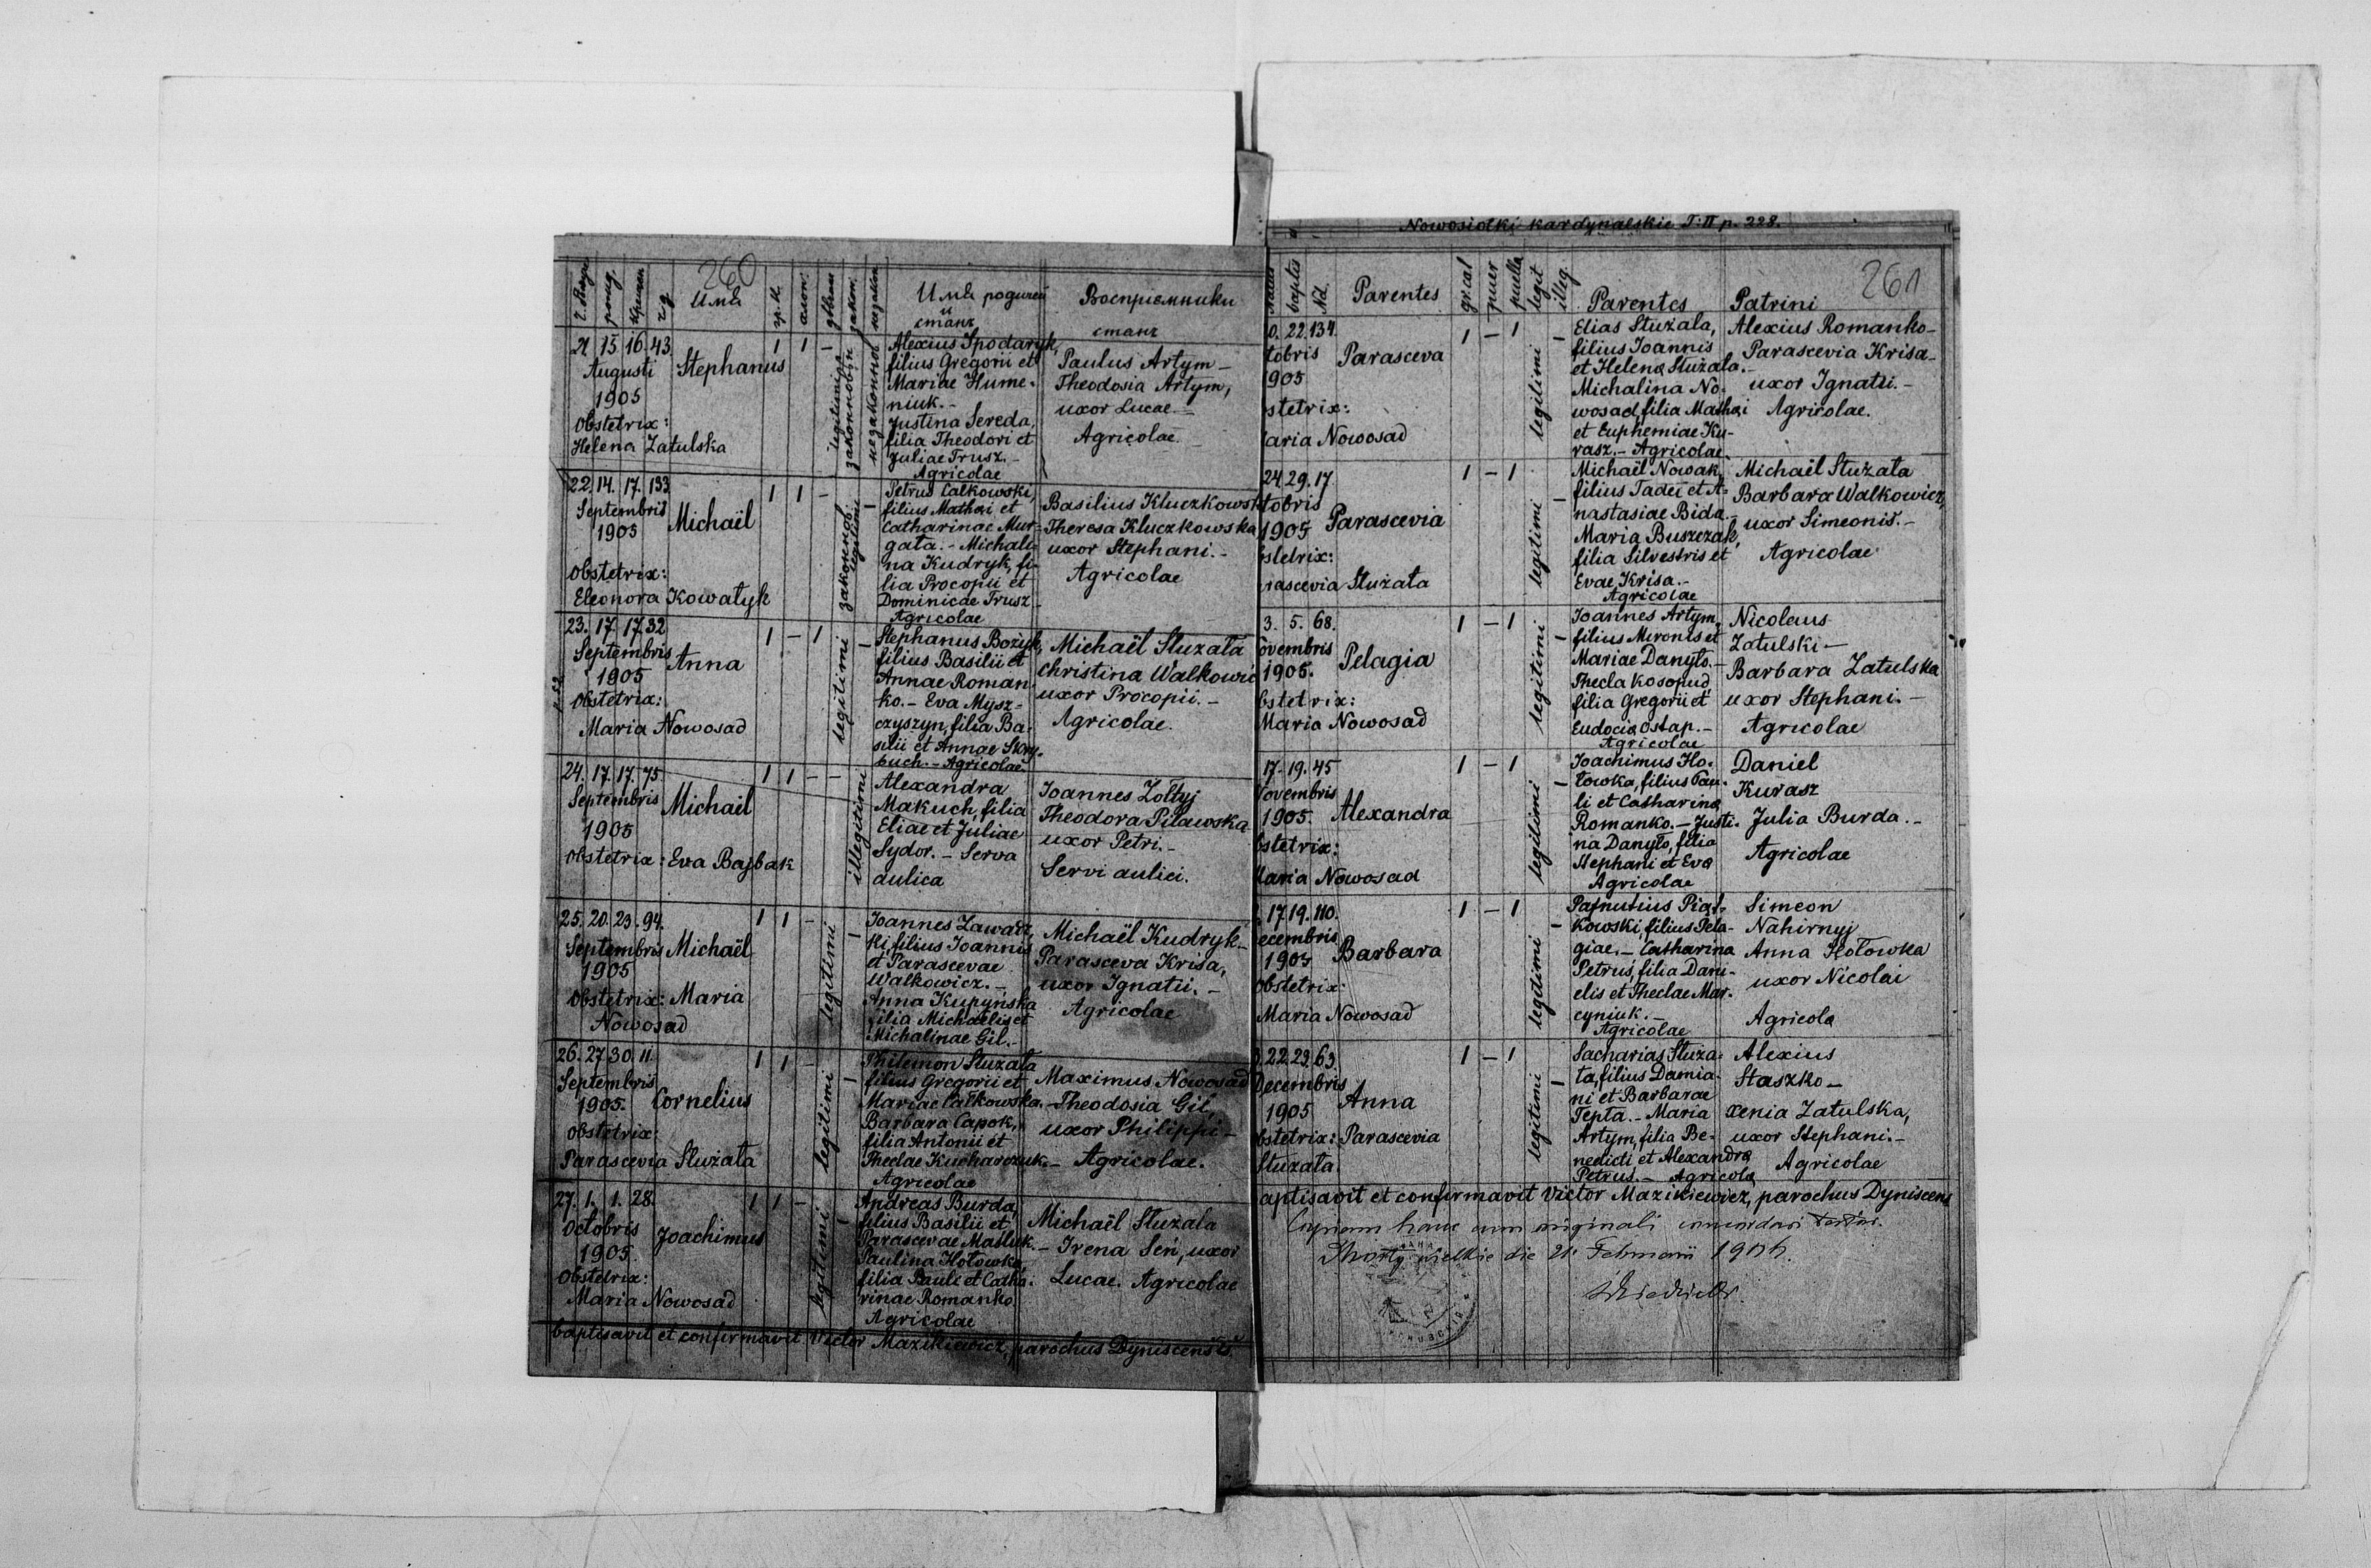 260
Имѧ
Имѧ родичей
и
станъ
Восприемники
станъ
21. 15. 16. 43.
Augusti
1905
Stephanus
1 1 -
legitimi
законнов
незаконнов
Obstetrix:
Helena Zatulska
Alexius Spodaryk,
filius Gregorii et
Mariae Hume-
niuk.-
Justina Sereda,
filia Theodori et
Juliae Trusz.-
Agricolae
Paulus Artym-
Theodosia Artym,
uxor Lucae.-
Agricolae.
22. 14. 17. 133
Septembris
1905
Michaël
1 1 -
законнов
legitimi
Obstetrix:
Eleonora Kowalyk
Petrus Całkowski,
filius Mathei et
Catharinae Mur-
gata.- Michali-
na Kudryk, fi-
lia Procopii et
Dominicae Trusz-
Agricolae
Basilius Kluczkowsk
Theresa Kluczkowska
uxor Stephani.-
Agricolae
23. 17. 17. 32
Septembris
1905
Anna
1 - 1
legitimi
Obstetrix:
Maria Nowosad
Stephanus Bożyk,
filius Basilii et
Annae Roman-
ko.- Eva Mysz-
czyszyn, filia Ba-
silii et Annae Skry-
buch.- Agricolae
Michaël Służała
Christina Walkowic
uxor Procopii.-
Agricolae.
24. 17. 17. 75
Septembris
1905
Michaël
1 1 - -
illegitimi
Obstetrix: Eva Bajbak
Alexandra
Makuch, filia
Eliae et Juliae
Sydor.- Serva
aulica
Joannes Żołtyj
Theodora Pilawska
uxor Petri.-
Servi aulici.
25. 20. 23. 94.
Septembris
1905
Michaël
1 1 -
legitimi
Obstetrix: Maria
Nowosad
Joannes Zawadz
ki, filius Joannis
et Parascevae
Walkowicz.-
Anna Kupyńska
filia Michaelis et
Michalinae Gil.-
Michaël Kudryk-
Parasceva Krisa,
uxor Ignatii.-
Agricolae
26. 27. 30. 11.
Septembris
1905.
Cornelius
1 1 -
legitimi
Obstetrix:
Parascevia Służała
Philemon Służała
filius Gregorii et
Mariae Całkowska.
Barbara Capok,
filia Antonii et
Theclae Kucharczuk.-
Agricolae
Maximus Nowosad
-Theodosia Gil,
uxor Philippi-
Agricolae.
27. 1. 1. 28.
Octobris
1905
Joachimus
1 1 -
legitimi
Obstetrix:
Maria Nowosad
Andreas Burda,
filius Basilii et
Parascevae Masluk.-
Paulina Hołowka,
filia Pauli et Catha-
rinae Romanko
Agricolae
Michaël Służała
- Irena Seń, uxor
Lucae. Agricolae
baptisavit et confirmavit Victor Mazikiewicz, parochus Dyniscensis.
Nowosiołki kardynalskie T: II p. 228.
261
baptis
Nd.
Parentes
gr. cal
puer
puella
legit
illeg.
Parentes
Patrini
0. 22. 134.
tobris
905
Parasceva
1 - 1
legitimi
stetrix:
aria Nowosad
Elias Służała,
filius Joannis
et Helena Służała.-
Michalina No-
wosad, filia Mathei
et Euphemiae Ku-
rasz.- Agricolae
Alexius Romanko-
Parascevia Krisa-
uxor Ignatii.-
Agricolae.
24. 29. 17.
tobris
1905
Parascevia
1 - 1
legitimi
bstetrix:
rascevia Służała
Michaël Nowak,
filius Tadei et A-
nastasiae Bida.-
Maria Buszczak,
filia Silvestris et
Evae Krisa.-
Agricolae
Michaël Służała
Barbara Walkowicz,
uxor Simeonis.-
Agricolae
3. 5. 68.
ovembris
1905.
Pelagia
1 - 1
legitimi
bstetrix:
Maria Nowosad
Joannes Artym,
filius Mironis et
Mariae Danyło.-
Thecla Kosopud,
filia Gregorii et
Eudocia Ostap.-
Agricolae
Nicolaus
Zatulski-
Barbara Zatulska
uxor Stephani.-
Agricolae
17. 19. 45
ovembris
1905.
Alexandra
1 - 1
legitimi
bstetrix:
Maria Nowosad
Joachimus Ho-
łowka, filius Pau-
li et Catharina
Romanko.- Justi-
na Danyło, filia
Stephani et Eva
Agricolae
Daniel
Kurasz
Julia Burda.-
Agricolae
17. 19. 110.
ecembris
1905
Barbara
1 - 1
legitimi
Obstetrix:
Maria Nowosad
Pafnutius Piąt-
kowski, filius Pela-
giae.- Catharina
Petruś, filia Dani-
elis et Theclae Mar-
cyniuk.-
Agricolae
Simeon
Nahirnyj
Anna Hołowka
uxor Nicolai
Agricola
22. 23. 63.
Decembris
1905
Anna
1 - 1
legitimi
bstetrix: Parascevia
Służała.
Sacharias Służa-
ła, filius Damia-
ni et Barbarae
Tepta.- Maria
Artym, filia Be-
nedicti et Alexandra
Petrus.- Agricola
Alexius
Staszko-
Xenia Zatulska,
uxor Stephani.-
Agricolae
aptisavit et confirmavit Victor Mazikiewicz, parochus Dyniscens
Copiam hanc cum originali concordari testor.
die 21. Februarii 1906.